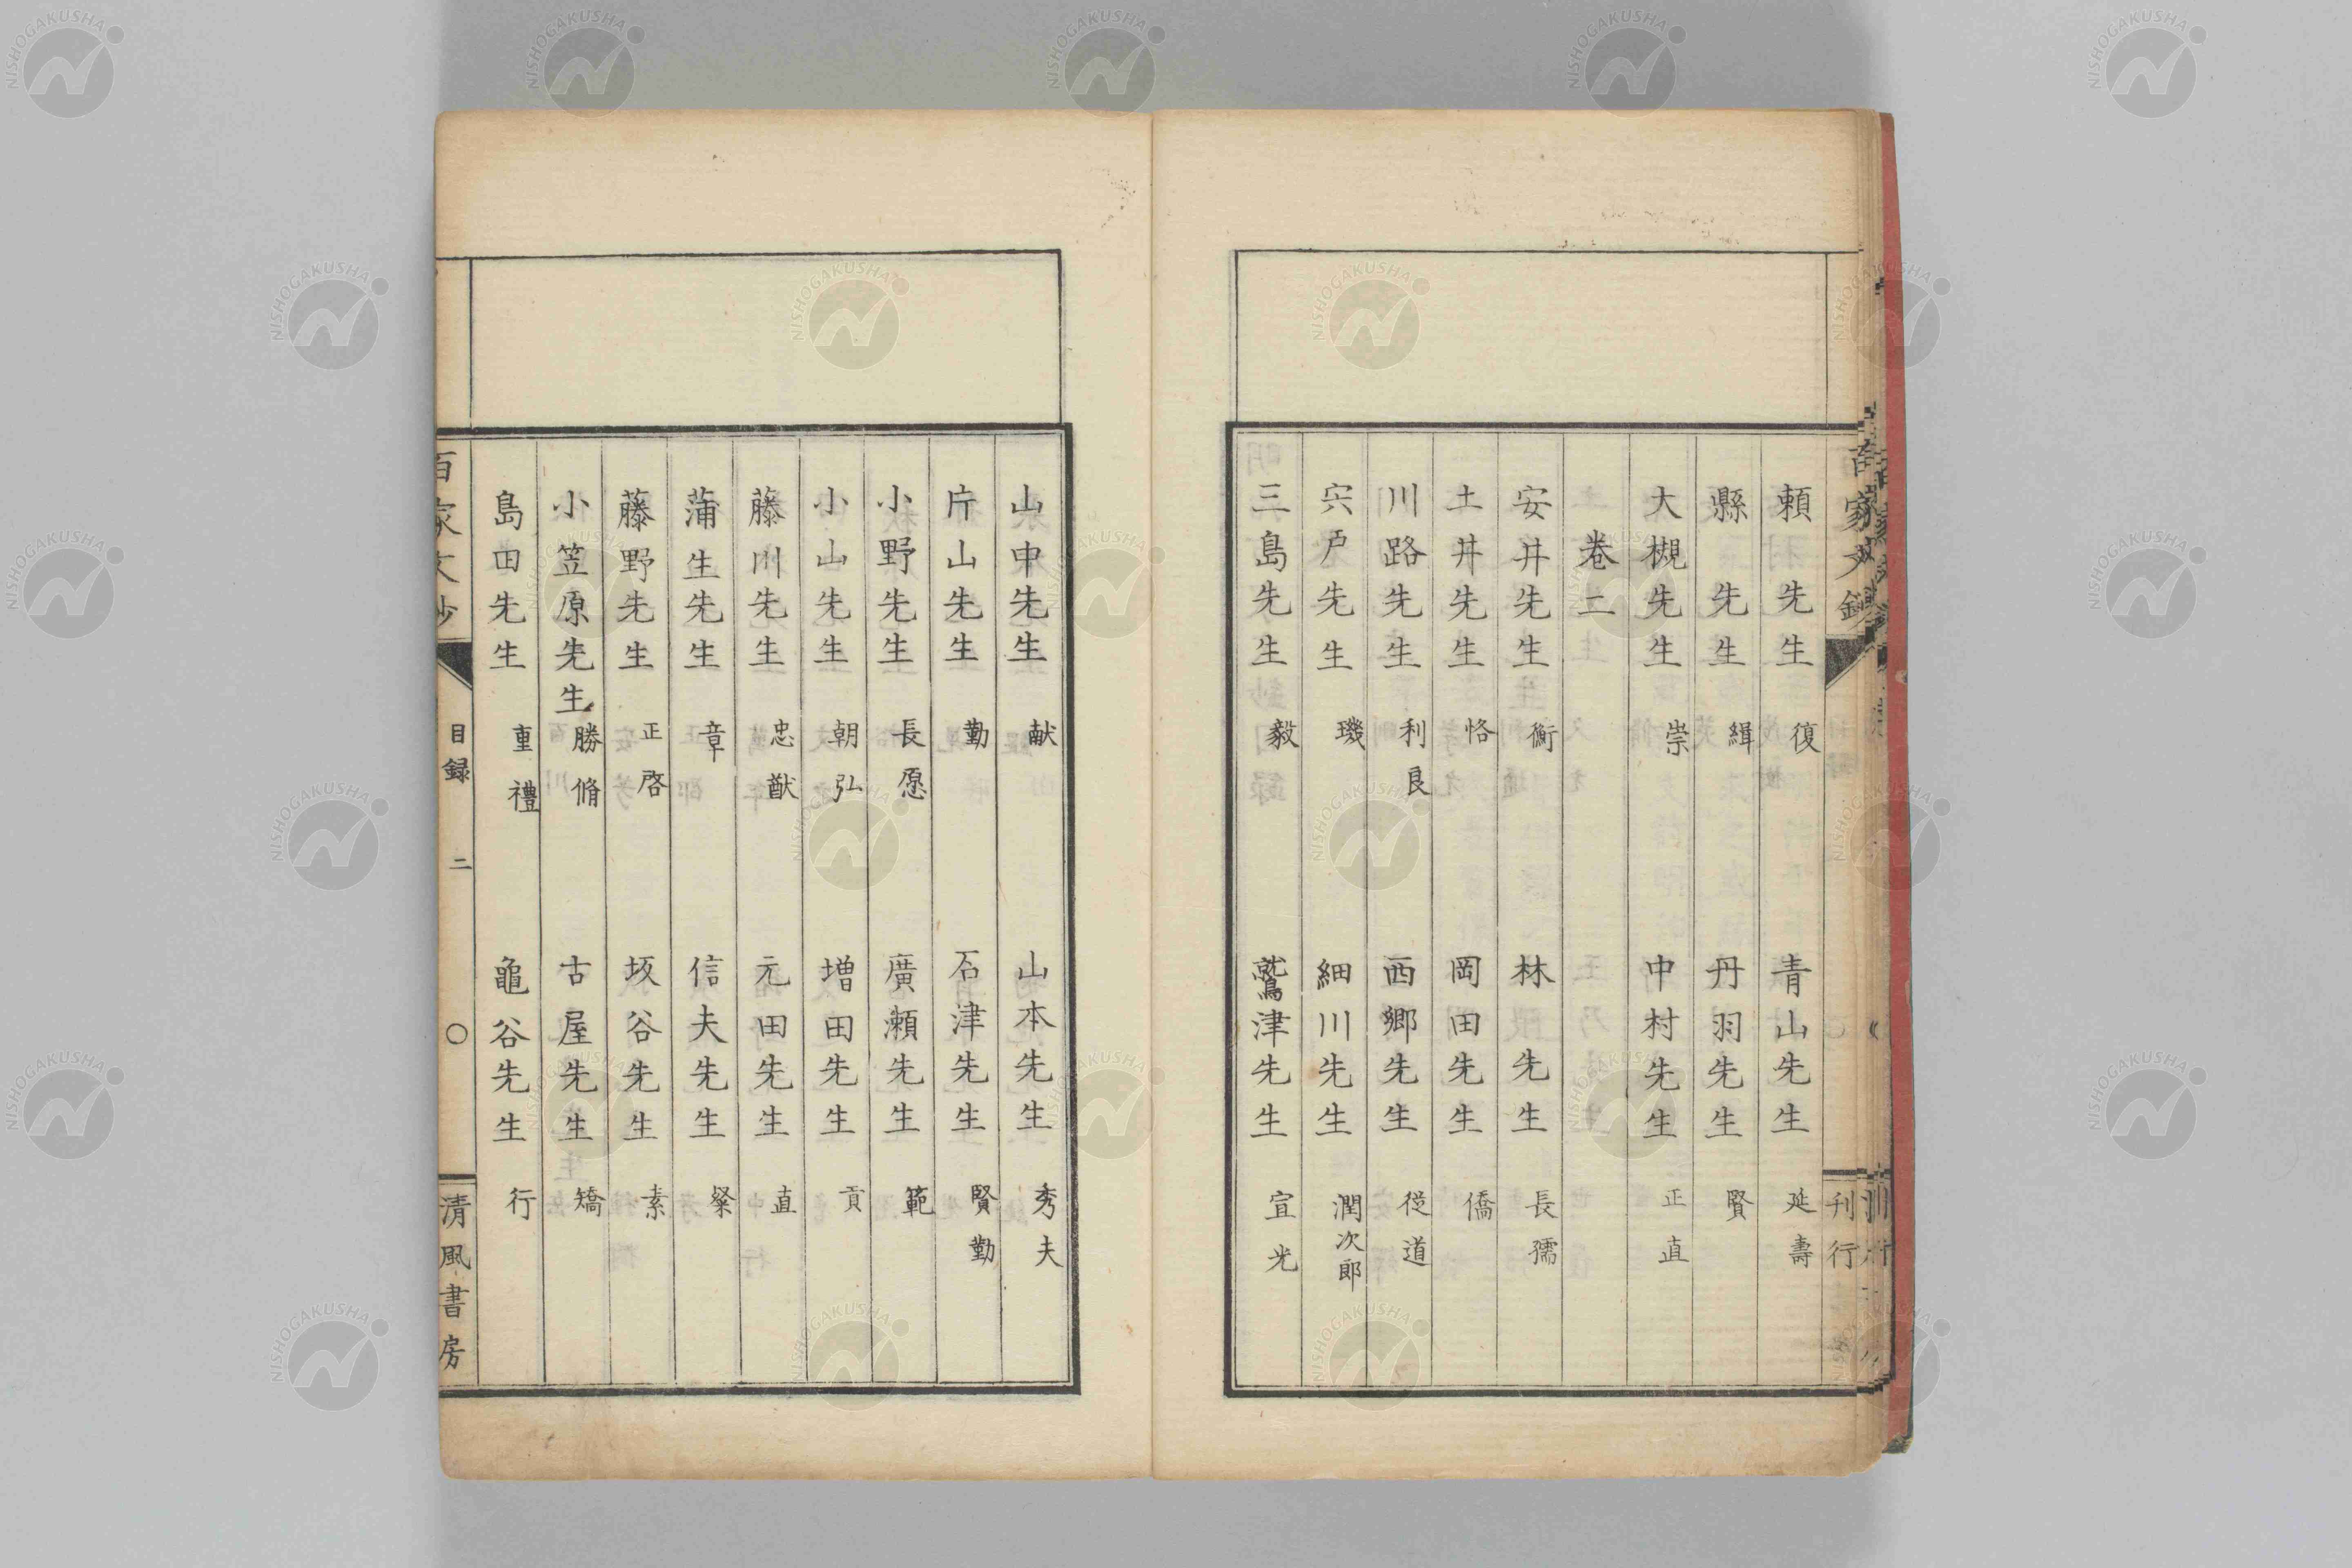 頼先生 復 青山先生 延壽
縣先生 緝 丹羽先生 賢
大槻先生 崇 中村先生 正直
卷二
安井先生 衡 林先生 長孺
土井先生 恪 岡田先生 僑
川路先生 利良 西郷先生 從道
宍戸先生 璣 細川先生 潤次郎
三島先生 毅 鷲津先生 宣光
山中先生 献 山本先生 秀夫
片山先生 勤 石津先生 賢勤
小野先生 長愿 廣瀬先生 範
小山先生 朝弘 増田先生 貢
藤川先生 忠猷 元田先生 直
蒲生先生 章 信夫先生 粲
藤野先生 正啓 坂谷先生 素
小笠原先生 勝脩 古屋先生 矯
島田先生 重禮 龜谷先生 行
百家文鈔 目録 二 〇 清風書房
刊行
NISHOGAKUSHA